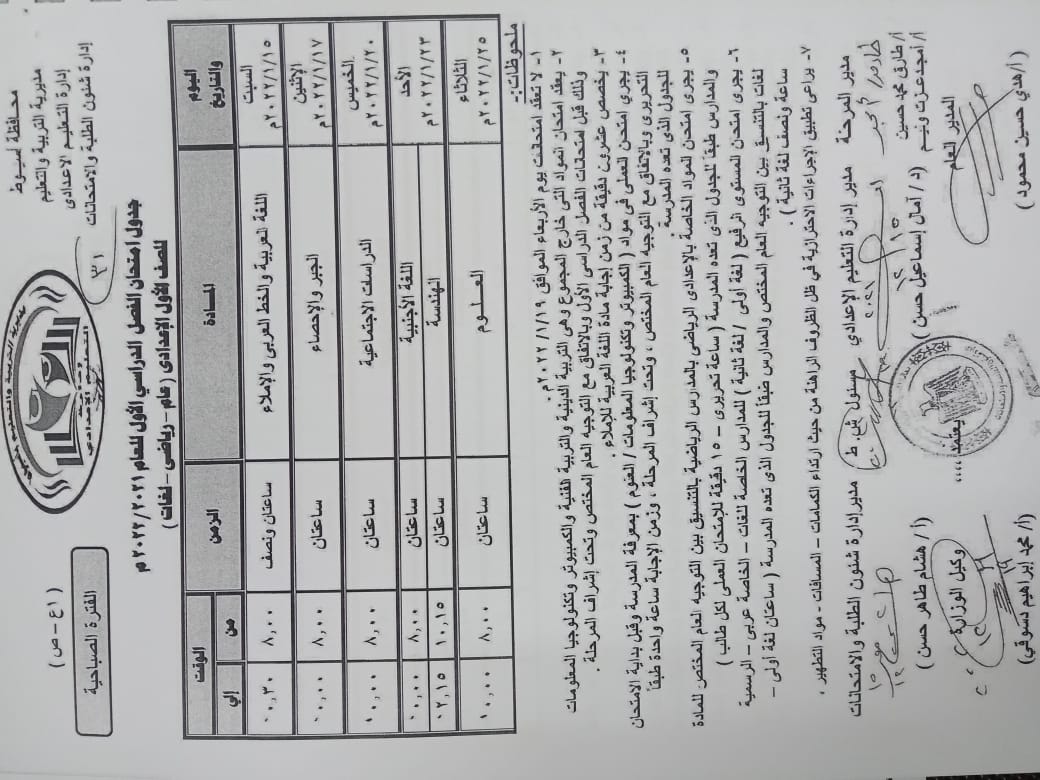 محافظة أسيوط
مديرية التربية والتعليم
إدارة التعليم الاعدادى
إدارة شئون الطلبة والامتحانات
٣١
مديرية التربية والتعليم
التعليم الإعدادى
( ١ع – ص )
الفترة الصباحية
جدول امتحان الفصل الدراسي الأول للعام ٢٠٢١/٢٠٢٢م
للصف الأول الإعدادى ( عام – رياضى – لغات )
اليوم والتاريخ المادة الزمن الوقت
من إلي
السبت ٢٠٢٢/١/١٥م اللغة العربية والخط العربى والإملاء ساعتان ونصف ٨,٠٠ ٠,٣٠
الإثنين ٢٠٢٢/١/١٧م الجبر والإحصاء ساعتان ٨,٠٠ ٠,٠٠
الخميس ٢٠٢٢/١/٢٠م الدراسات الاجتماعية ساعتان ٨,٠٠ ٠,٠٠
الأحد ٢٠٢٢/١/٢٣م اللغة الأجنبية ساعتان ٨,٠٠ ٠,٠٠
الهندسة ساعتان ١٠,١٥ ٢,١٥
الثلاثاء ٢٠٢٢/١/٢٥م العلوم ساعتان ٨,٠٠ ١٠,٠٠
ملحوظات:-
١- لا تعقد امتحانات يوم الأربعاء الموافق ٢٠٢٢/١/١٩م .
٢- يعقد امتحان المواد التى خارج المجموع وهى التربية الدينية والتربية الفنية والكمبيوتر وتكنولوجيا المعلومات
وذلك قبل امتحانات الفصل الدراسى الأول وبالاتفاق مع التوجيه العام المختص وتحت إشراف المرحلة .
٣- يخصص عشرون دقيقة من زمن إجابة مادة اللغة العربية للإملاء .
٤- يجرى امتحان العملى فى مواد ( الكمبيوتر وتكنولوجيا المعلومات / العلوم ) بمعرفة المدرسة وقبل بداية الامتحان
التحريرى وبالاتفاق مع التوجيه العام المختص ، وتحت إشراف المرحلة ، وزمن الإجابة ساعة واحدة طبقاً
للجدول الذى تعده المدرسة .
٥- يجرى امتحان المواد الخاصة بالإعدادى الرياضى بالمدارس الرياضية بالتنسيق بين التوجيه العام المختص للمادة
والمدارس طبقاً للجدول الذى تعده المدرسة ( ساعة تحريرى – ١٥ دقيقة للامتحان العملى لكل طالب )
٦- يجرى امتحان المستوى الرفيع ( لغة أولى / لغة ثانية ) للمدارس الخاصة للغات – الخاصة عربى – الرسمية
لغات بالتنسيق بين التوجيه العام المختص والمدارس طبقاً للجدول الذى تعده المدرسة ( ساعتان لغة أولى –
ساعة ونصف لغة ثانية ) .
٧- يراعى تطبيق الإجراءات الاحترازية فى ظل الظروف الراهنة من حيث ارتداء الكمامات – المسافات – مواد التطهير .
مدير المرحلة مدير إدارة التعليم الإعدادي مسئول ش. ط مدير إدارة شئون الطلبة والامتحانات
أ/ طارق محمد حسين
أ/ أمجد عزت ونيس ( د / آمال إسماعيل حسن ) ( أ / هشام طاهر حسن )
يعتمد ،،،،
المدير العام وكيل الوزارة
( أ/ هدي حسين محمود ) ( أ/ محمد إبراهيم دسوقي )